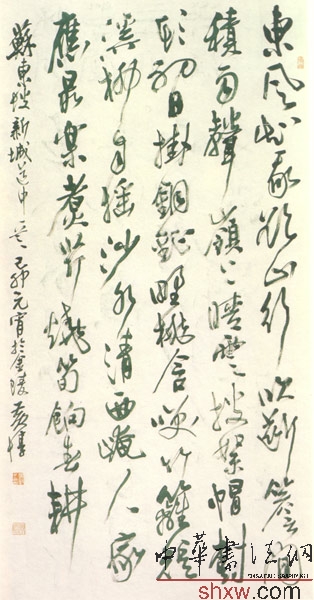 東風知我欲山行吹斷簷間
積雨聲嶺上晴雲披絮帽樹
頭初日掛銅鉦野桃含笑竹籬短
溪柳自搖沙水清西崦人家
應最樂煮芹燒筍餉春耕
蘇東坡新城道中 己卯元宵於金陵黃惇
中華書法網
shxw.com